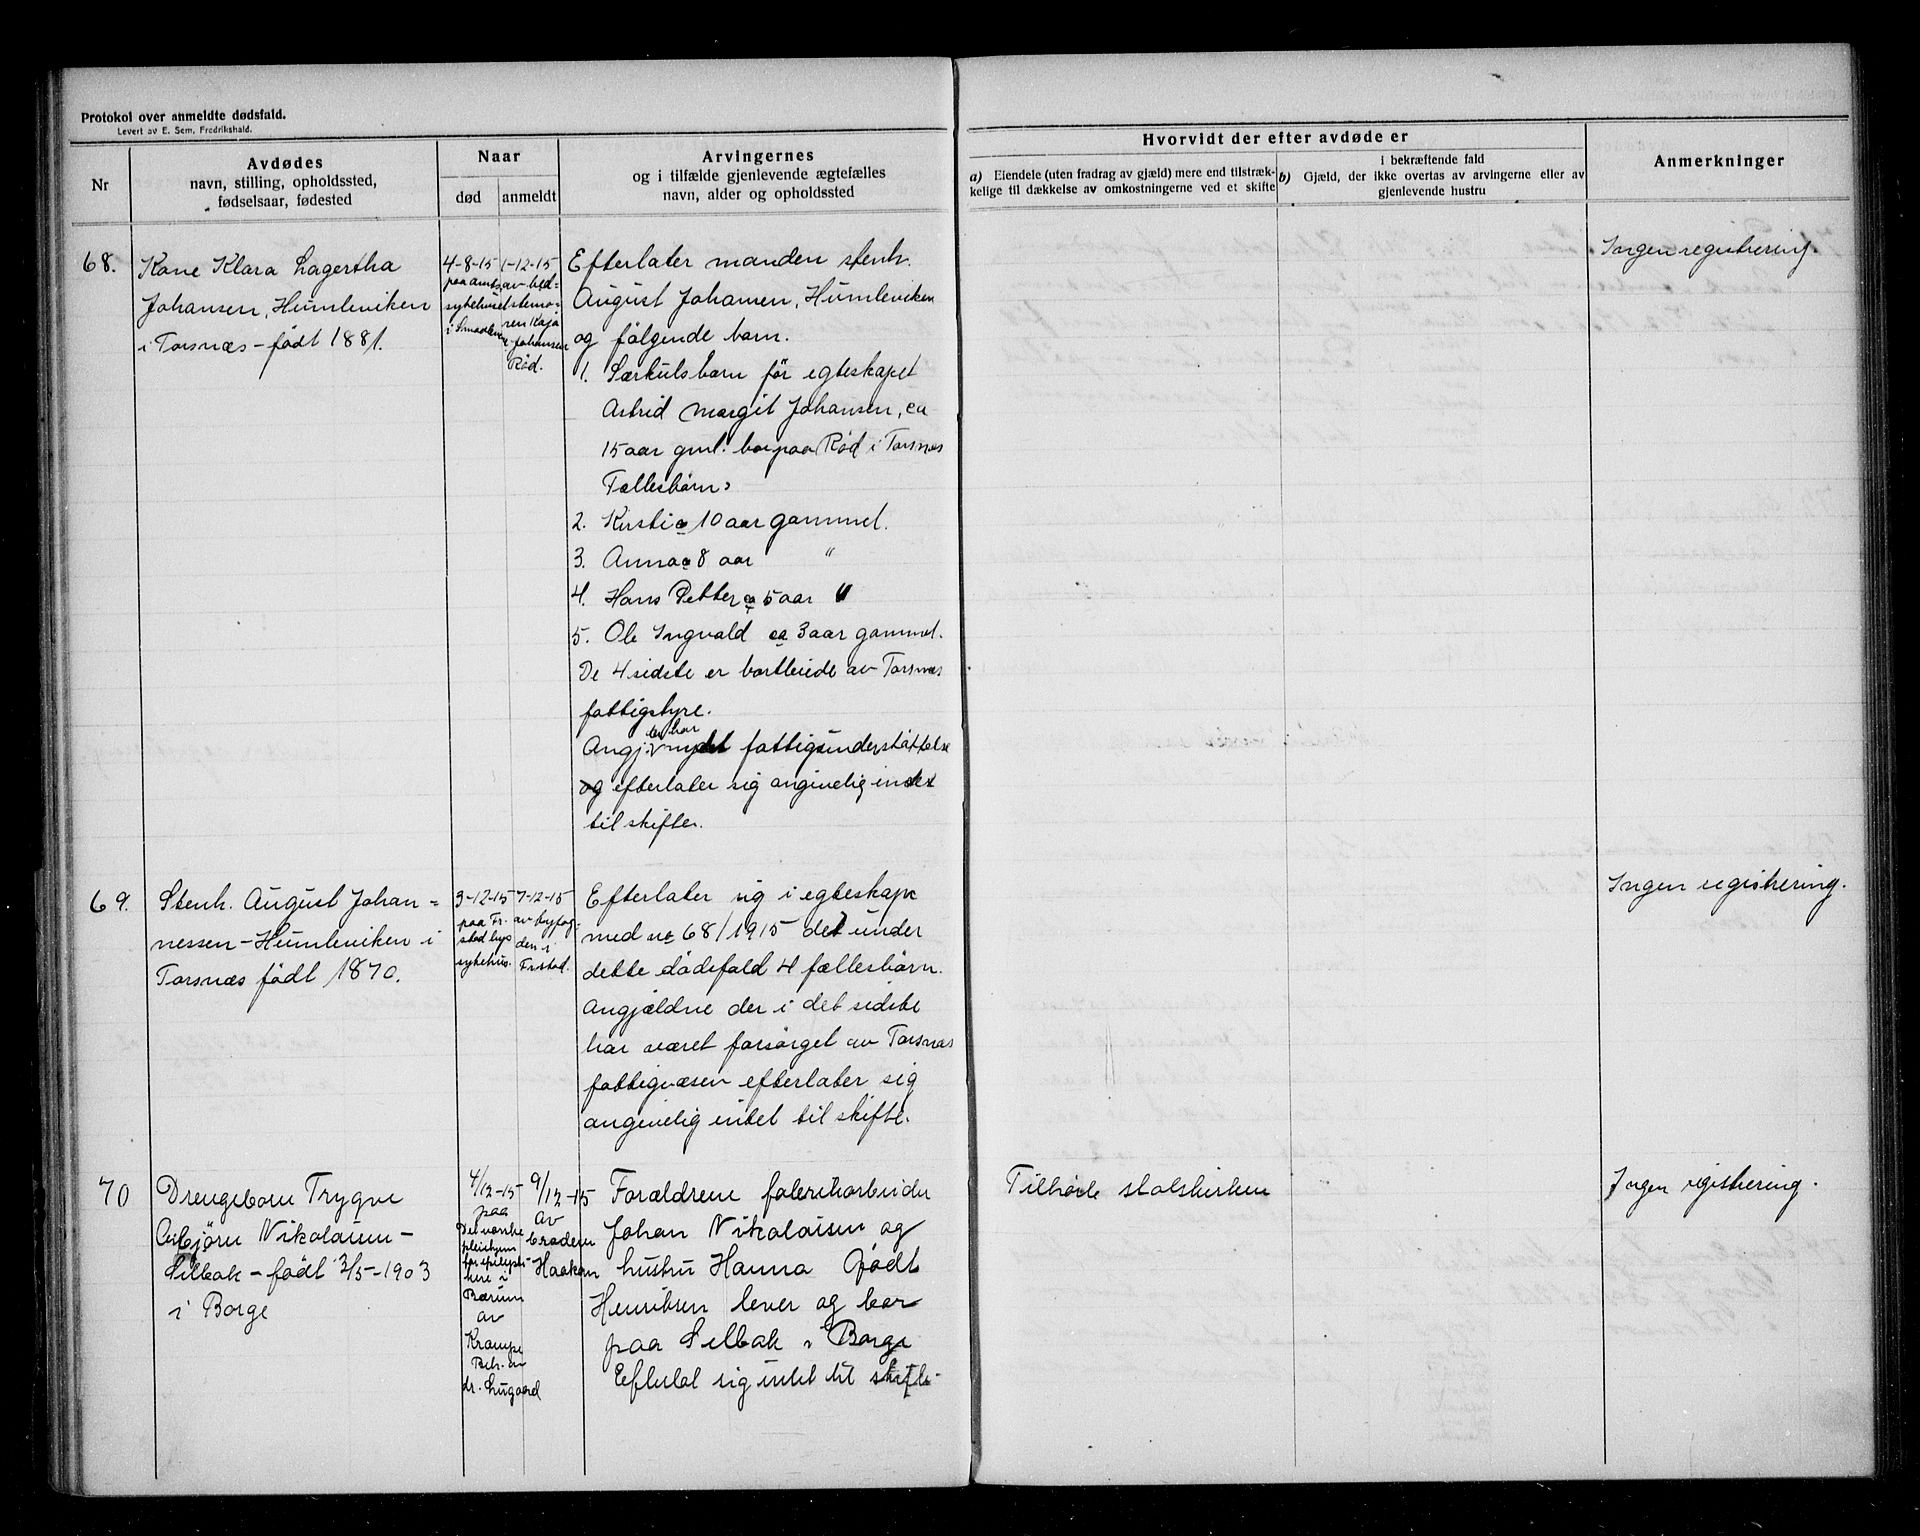 Protokol over anmeldte dødsfald.
Levert av E. Sem, Fredrikshald.
Nr
Avdødes
navn, stilling, opholdssted,
fødselsaar, fødested
Naar
død
anmeldt
Arvingernes
og i tilfælde gjenlevende ægtefælles
navn, alder og opholdssted
Hvorvidt der efter avdøde er
a) Eiendele (uten fradrag av gjæld) mere end tilstræk-
kelige til dækkelse av omkostningerne ved et skifte
b)
i bekræftende fald
Gjæld, der ikke overtas av arvingerne eller av
gjenlevende hustru
Anmerkninger
68.
Kone Klara Lagertha
Johansen, Humleviken
i Torsnæs - født 1881.
4-8-15
paa amts
sykehuset
i
1-12-15
av bed=
stemo-
ren Kaja
Johansen
Rød.
Efterlater manden stenh.
August Johansen, Humleviken
og følgende barn.
1. Særkulsbarn før egteskapet
Astrid Margit Johansen, ca
15 aar gml. bor paa Rød i Torsnæs
Fællesbørn:
2. Kirsti ca 10 aar gammel.
3. Anna ca 8 aar "
4. Hans Petter ca 5 aar "
5. Ole Ingvald ca 3 aar gammel.
De 4 sidste er bortleiede av Torsnæs
fattigstyre.
har
Angj. nydt fattigunderstøttelse
og efterlater sig angivelig intet
til skifte.
Ingen registrering.
69.
Stenh. August Johan=
nessen - Humleviken i
Torsnæs født 1870.
3-12-15
paa Fr.
stad bys
sykehus.
7-12-15
av byfog-
den i
Fr.stad.
Efterlater sig i egteskape
med nr 68/1915 de under
dette dødsfald 4 fællesbørn.
Angjældne der i det sidste
har været forsørget av Torsnæs
fattigvæsen efterlater sig
angivelig intet til skifte.
Ingen registrering.
70
Drengebarn Trygve
Asbjørn Nikolaisen -
Selbak - født 2/5-1903
i Borge
4/12-15
paa
Det norske
pleiehjem
for epilepti-
kere i
Bærum
av
Krampe
Beh. av
dr. Lugaard
9/12-15
av
broderen
Haakon
Forældrene fabrikarbeider
Johan Nikolaisen og
hustru Hanna født
Henriksen lever og bor
paa Selbak i Borge
Efterlot sig intet til skifte-
Tilhørte statskirken
Ingen registrering.